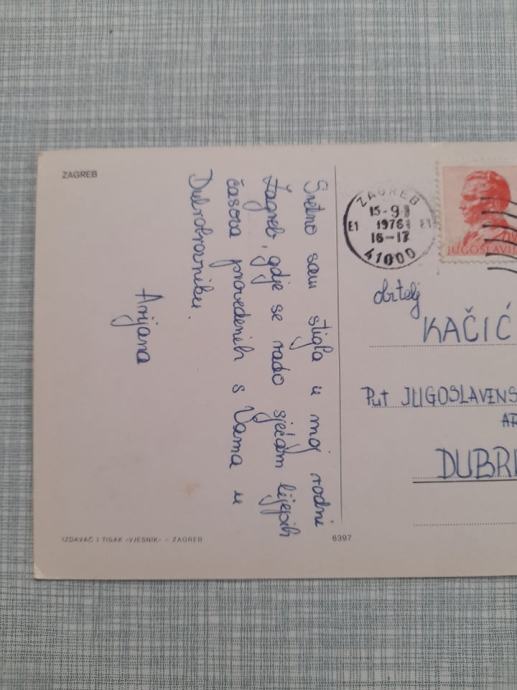 ZAGREB
Sretno sam stigla u moj rodni
Zagreb, gdje se rado sjećam lijepih
časova provedenih s Vama u
Dubrovniku.
Arijana
ZAGREB
15-9
E1 1976 E1
16-17
41000
JUGOSLAVI
obitelj
KAČIĆ
Put JUGOSLAVENS
AR
DUBR
IZDAVAČ I TISAK »VJESNIK« – ZAGREB
6397